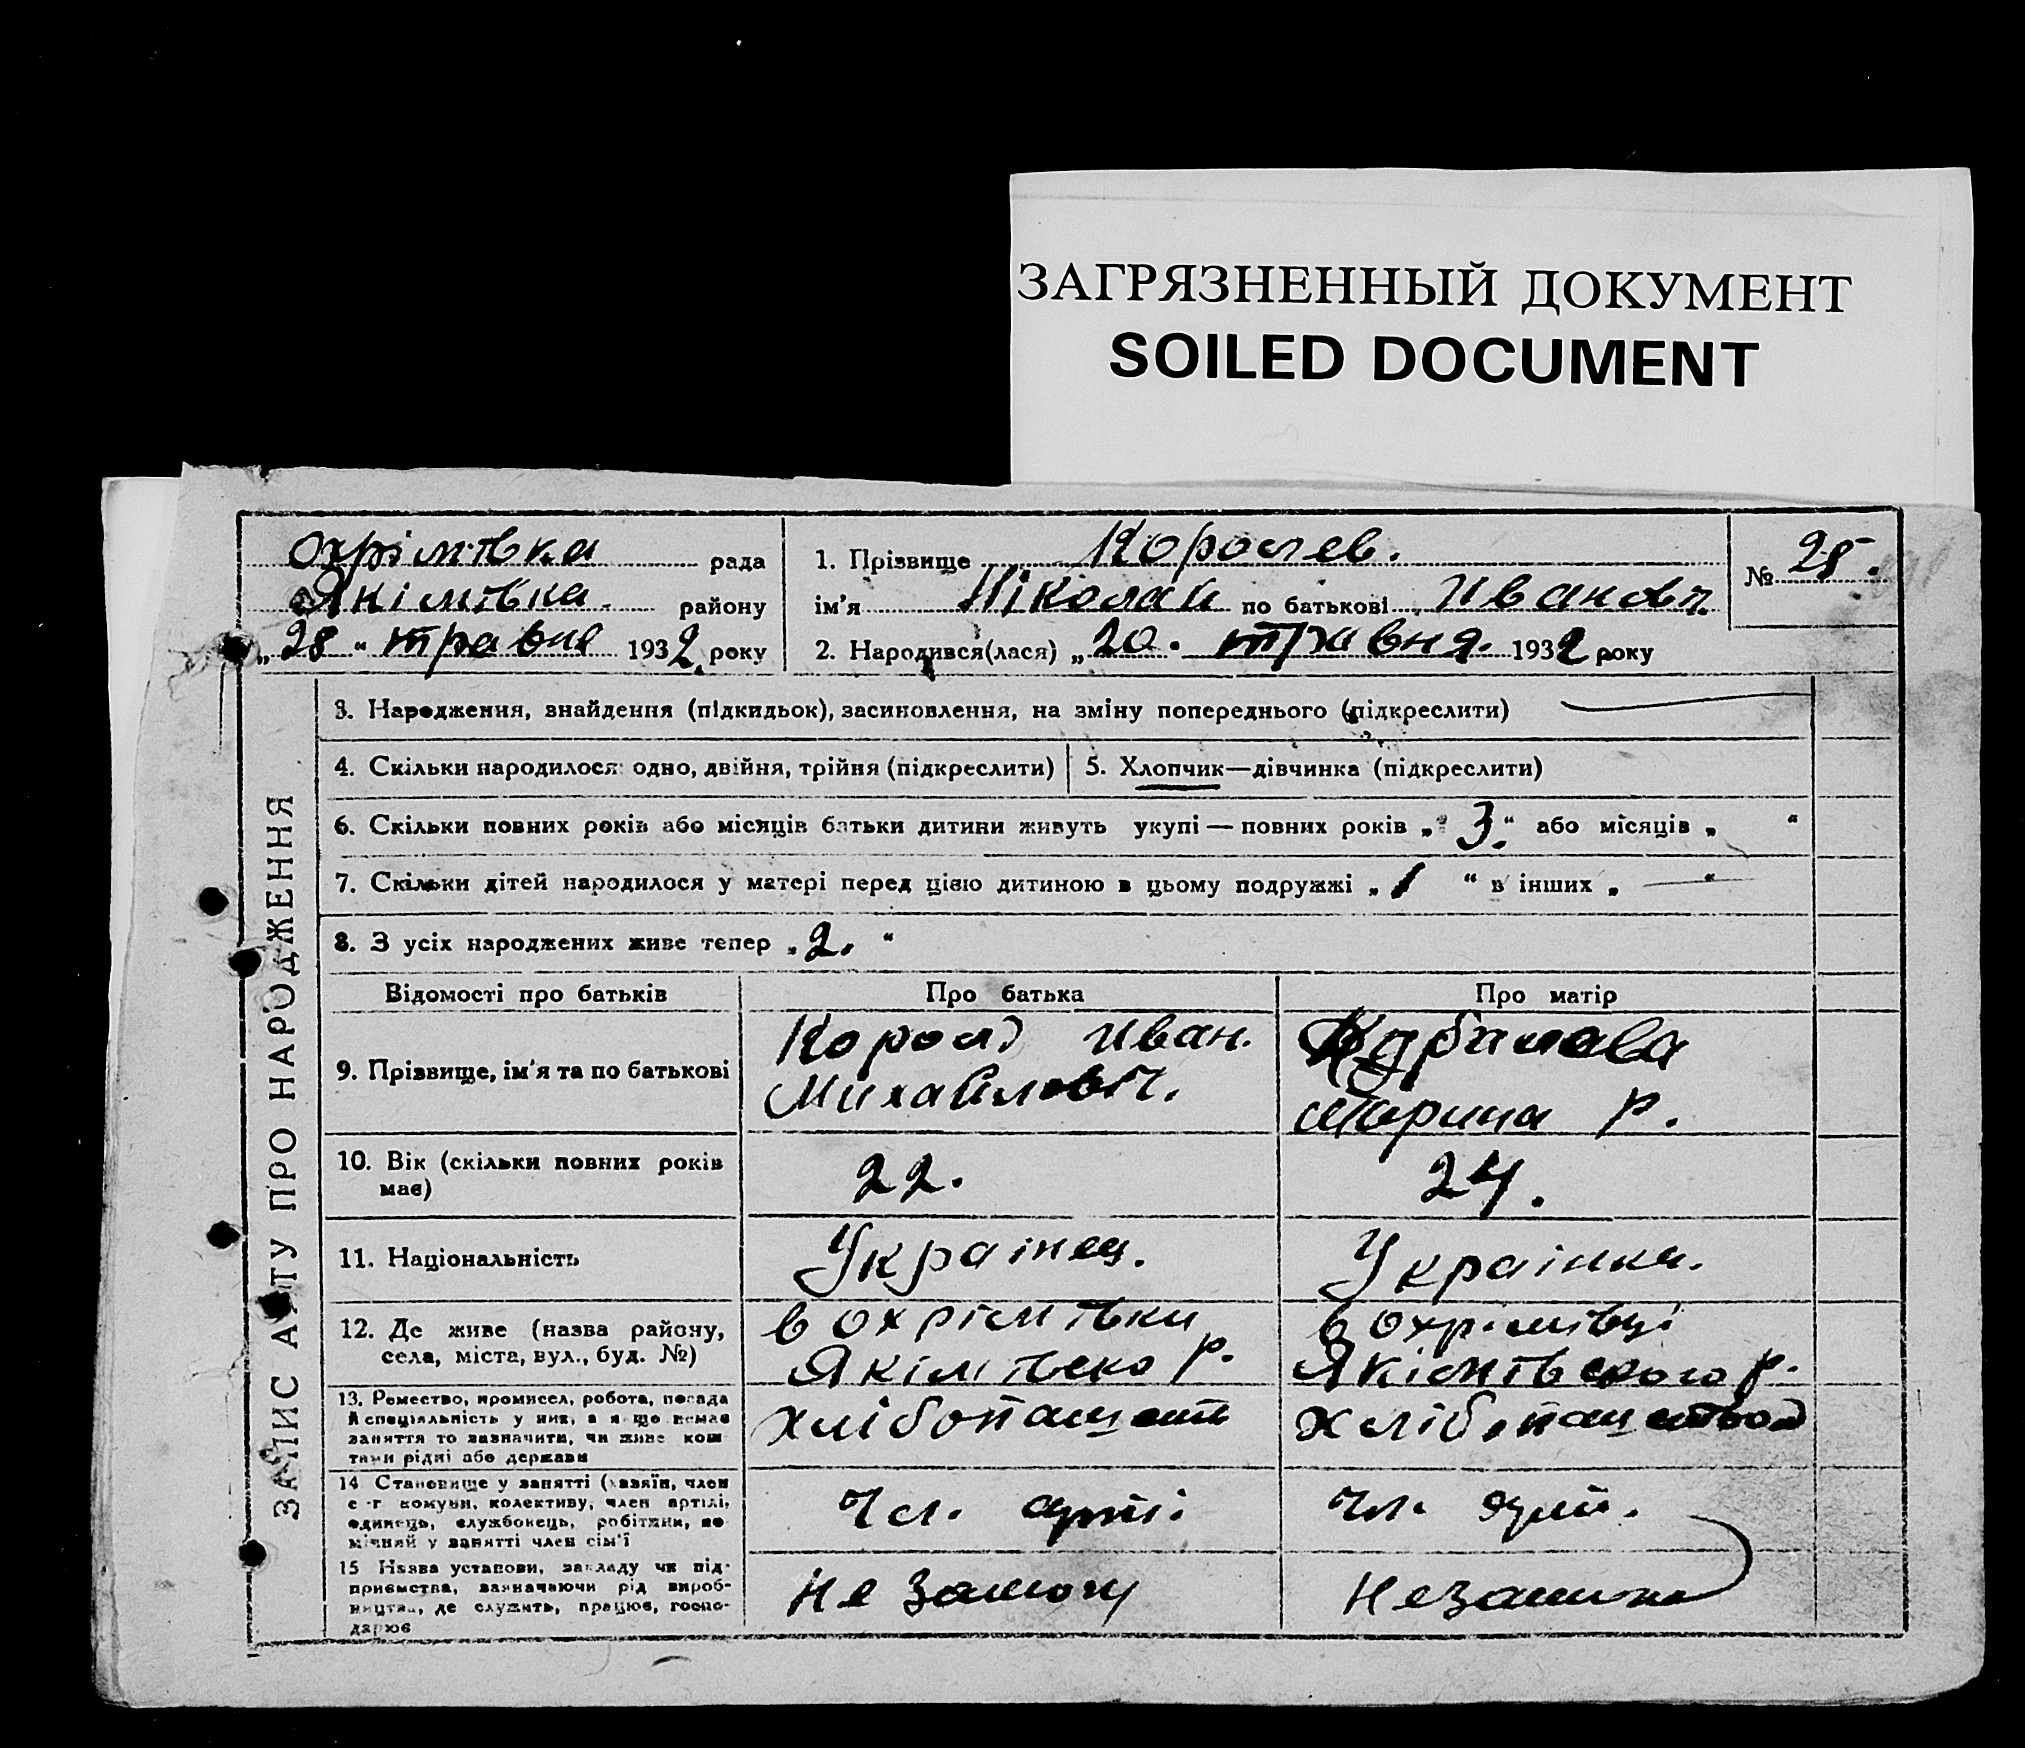 ЗАГРЯЗНЕННЫЙ ДОКУМЕНТ
SOILED DOCUMENT
Охрімівка рада
Якімівка району
„28“ травня 1932 року
1. Прізвище Королев.
ім'я Ніколай по батькові Ивановч.
2. Народився(лася) „20. травня. 1932 року
№ 25.
ЗАПИС АКТУ ПРО НАРОДЖЕННЯ
3. Народження, знайдення (підкидьок), засиновлення, на зміну попереднього (підкреслити)
4. Скільки народилося: одно, двійня, трійня (підкреслити)
5. Хлопчик—дівчинка (підкреслити)
6. Скільки повних років або місяців батьки дитини живуть укупі — повних років „3.“ або місяців „ “
7. Скільки дітей народилося у матері перед цією дитиною в цьому подружжі „1“ в інших „—“
8. З усіх народжених живе тепер „2.“
Відомості про батьків
Про батька
Про матір
9. Прізвище, ім'я та по батькові
Иван.
Михайлович.
р.
10. Вік (скільки повних років має)
22.
24.
11. Національність
Украінец.
Украінка.
12. Де живе (назва району, села, міста, вул., буд. №)
в Охрімівки
Якімівско р.
в Охрімівці
Якімівского р.
13. Ремество, промисел, робота, посада
й спеціяльність у них, а якщо немає
заняття то зазначити, чи живе кош-
тами рідні або держави
14 Становище у занятті (хазяїн, член
с-г комуни, колективу, член артілі,
одинець, службовець, робітник, по-
мічний у занятті член сім'ї
Чл. арті.
Чл. арті.
15 Назва установи, закладу чи під-
приємства, зазначаючи рід вироб-
ництва, де служить, працює, госпо-
дарює
Незамож
Незаможн